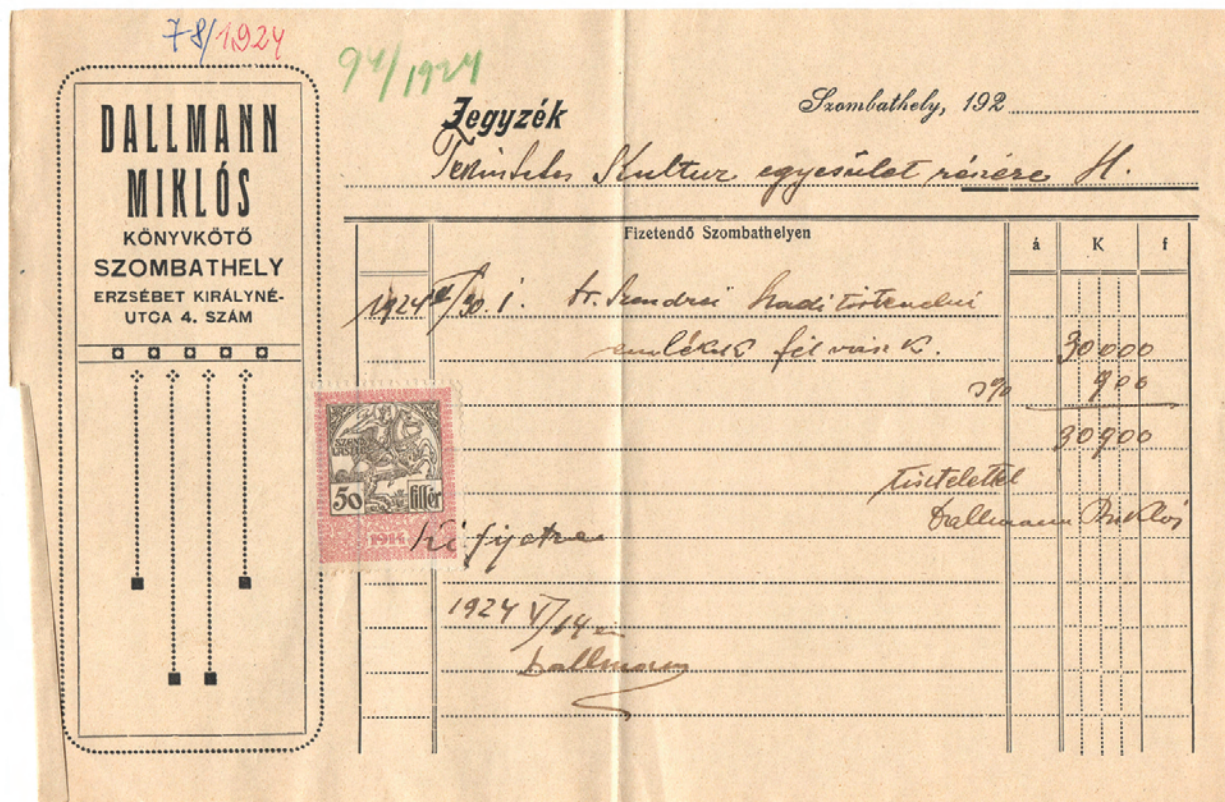 78/1924
94/1924
DALLMANN
MIKLÓS
KÖNYVKÖTŐ
SZOMBATHELY
ERZSÉBET KIRÁLYNÉ-
UTCA 4. SZÁM
Jegyzék
Szombathely, 192
Tekintetes Kultur egyesület részére H.
Fizetendő Szombathelyen
á K f
1924 /30. 1. Dr. Szendrei Hadi történelmi
emlékek fél vász k. 30000
3% 900
30900
tisztelettel
Dallmann Miklós
SZENT
LÁSZLÓ
50 fillér
1914
Kifizetve
1924 V/14-
Dallmann